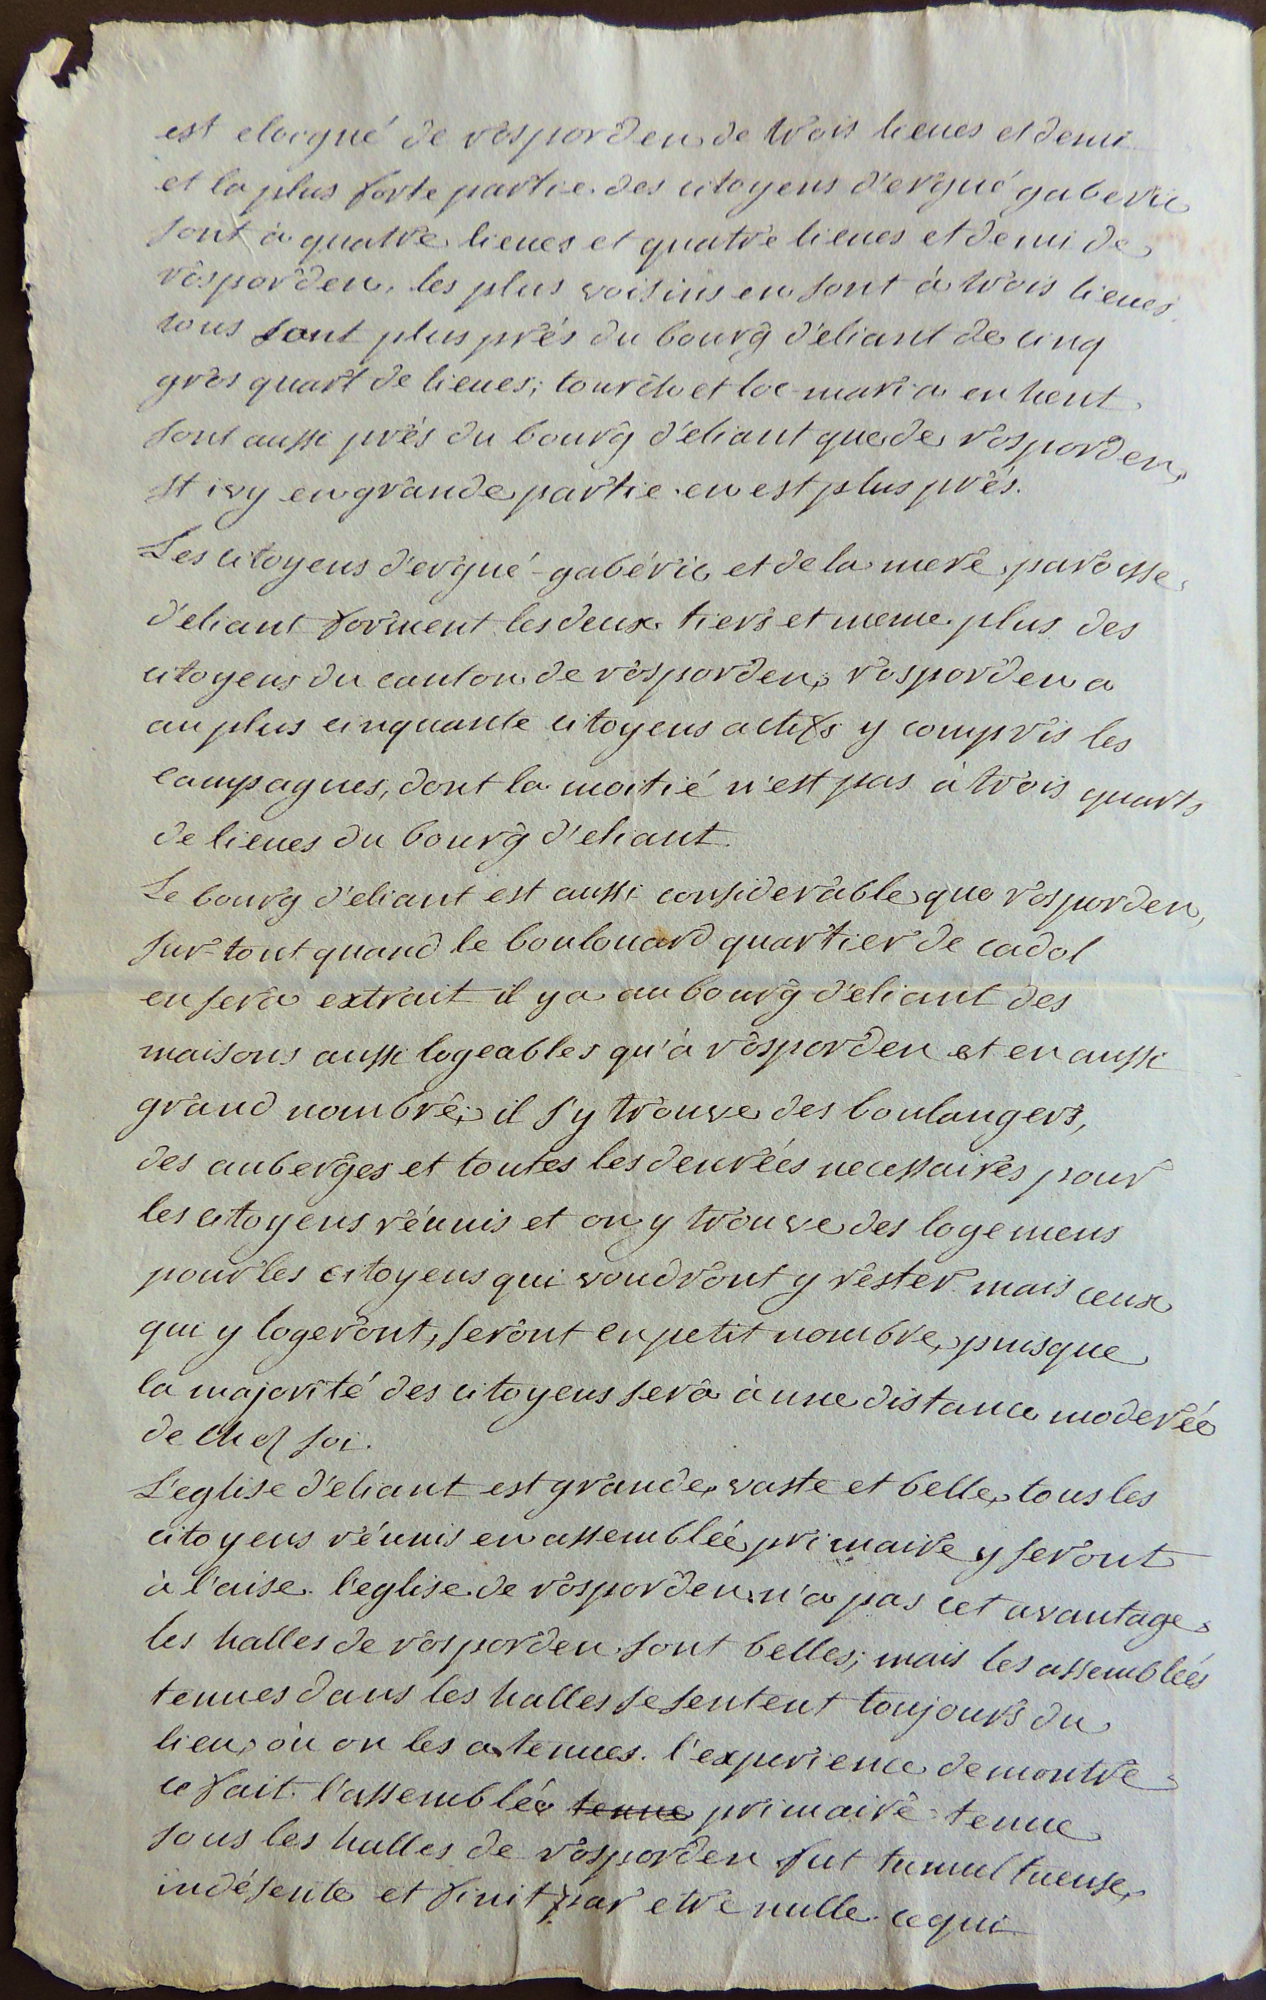 est eloigné de rosporden de trois lieues et demi
et la plus forte partie des citoyens d'ergué gaberic
sont à quatre lieues et quatre lieues et demi de
rosporden, les plus voisins en sont à trois lieues.
tous sont plus prés du bourg d'eliant de cinq
gros quart de lieues; tourch et loc-maria en hent
sont aussi prés du bourg d'eliant que de rosporden,
st ivy en grande partie en est plus prés.
Les citoyens d'ergué-gabéric et de la mere paroisse
d'eliant forment les deux tiers et meme plus des
citoyens du canton de rosporden, rosporden a
au plus cinquante citoyens actifs y compris les
campagnes, dont la moitié n'est pas à trois quarts
de lieues du bourg d'eliant.
Le bourg d'eliant est aussi considerable que rosporden,
sur-tout quand le boulouard quartier de cadol
en sera extrait il y a au bourg d'eliant des
maisons aussi logeables qu'à rosporden et en aussi
grand nombre, il s'y trouve des boulangers,
des auberges et toutes les denrées necessaires pour
les citoyens réunis et on y trouve des logemens
pour les citoyens qui voudront y rester mais ceux
qui y logeront, seront en petit nombre, puisque
la majorité des citoyens sera à une distance moderée
de chez soi.
L'eglise d'eliant est grande, vaste et belle, tous les
citoyens réunis en assemblée primaire y seront
à l'aise. l'eglise de rosporden n'a pas cet avantage.
les halles de rosporden sont belles; mais les assemblées
tenues dans les halles se sentent toujours du
lieu, où on les a tenues. l'experience demontre
ce fait. l'assemblée tenue primaire tenue
sous les halles de rosporden fut tumultueuse,
indésente et finit par etre nulle. ce qui